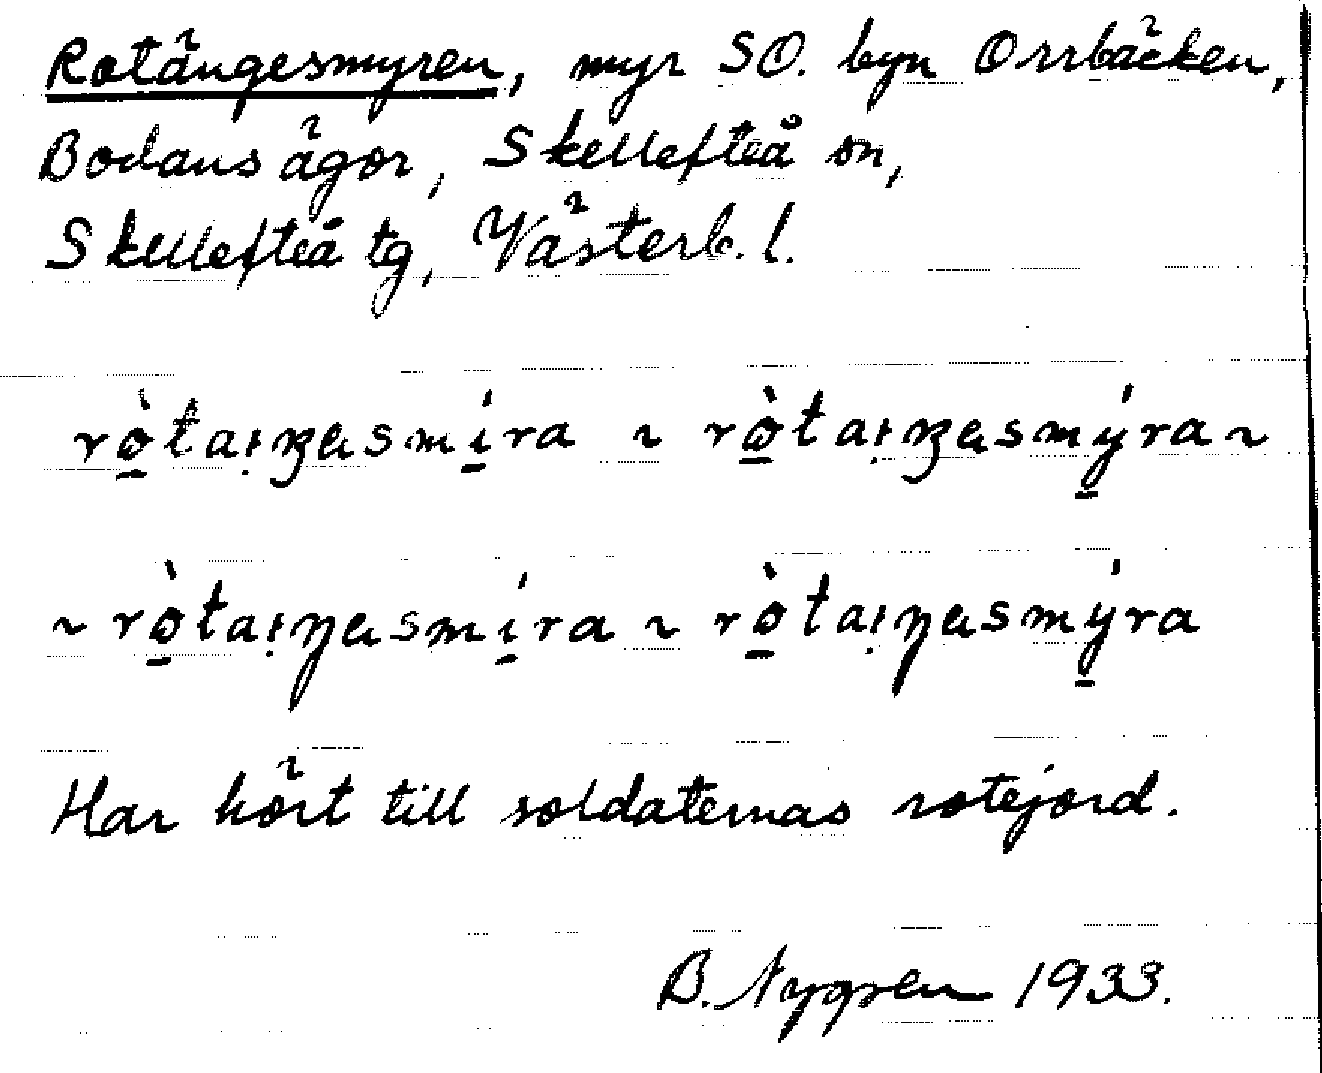 Rotängesmyren, myr SO. byn Orrbäcken,
Bodans ägor, Skellefteå sn,
Skellefteå tg, Västerb. l.
rò̠taꞏꞏŋasmí̠ra ~ rò̠taꞏꞏŋasmý̠ra ~
~ rò̠taꞏꞏŋasmí̠ra ~ rò̠taꞏꞏŋasmý̠ra
Har hört till soldaternas rotejord.
B. Nygren 1933.